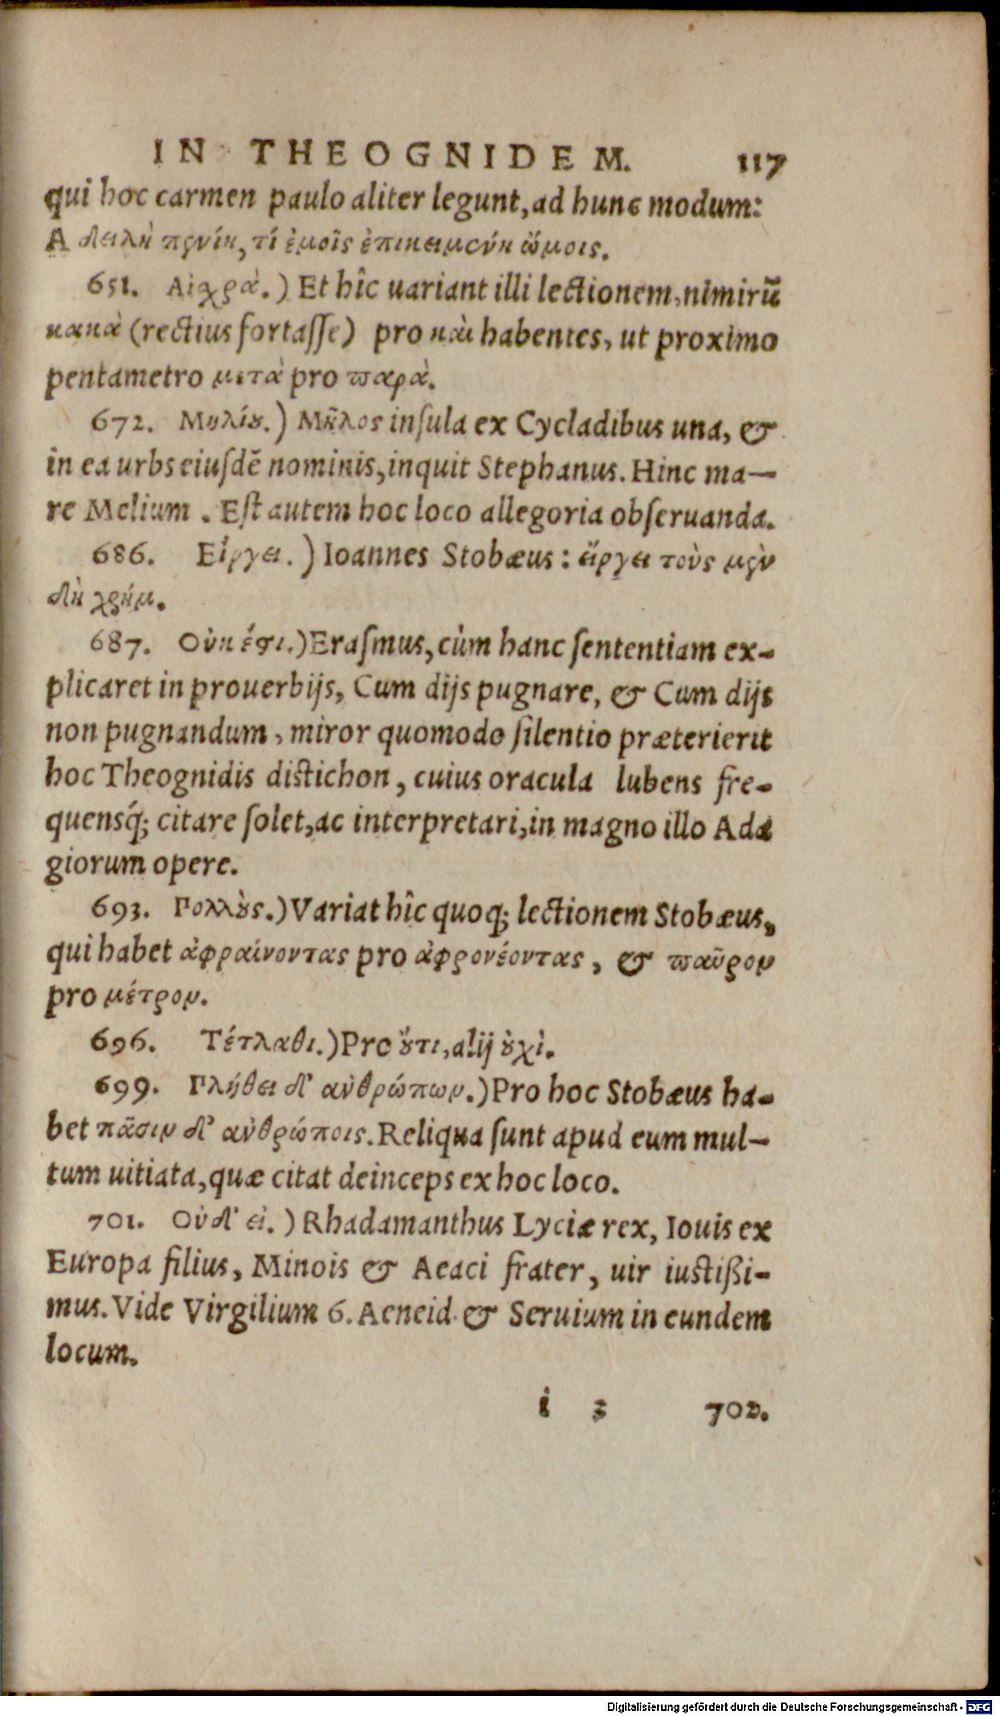 IN THEOGNIDEM. 117
qui hoc carmen paulo aliter legunt, ad hunc modum:
Α δειλὴ πενίη, τί ἐμοῖς ἐπικειμένη ὤμοις.
651. Αἰχρὰ.) Et hîc uariant illi lectionem, nimirū
κακὰ (rectius fortasse) pro καὶ habentes, ut proximo
pentametro μετὰ pro παρὰ.
672. Μηλίου.) Μῆλος insula ex Cycladibus una, &
in ea urbs eiusdē nominis, inquit Stephanus. Hinc ma-
re Melium. Est autem hoc loco allegoria obseruanda.
686. Εἴργει.) Ioannes Stobæus: εἴργει τοὺς μὲν
δὴ χρήμ.
687. Οὐκ ἔστι.) Erasmus, cùm hanc sententiam ex-
plicaret in prouerbijs, Cum dijs pugnare, & Cum dijs
non pugnandum, miror quomodo silentio præterierit
hoc Theognidis distichon, cuius oracula lubens fre-
quensq́; citare solet, ac interpretari, in magno illo Ada
giorum opere.
693. Πολλοὺς.) Variat hîc quoq; lectionem Stobæus,
qui habet ἀφραίνοντας pro ἀφρονέοντας, & παῦρον
pro μέτρον.
696. Τέτλαθι.) Pro οὔτι, alij οὐχὶ.
699. Πλήθει δ' ἀνθρώπων.) Pro hoc Stobæus ha-
bet πᾶσιν δ' ἀνθρώποις. Reliqua sunt apud eum mul-
tum uitiata, quæ citat deinceps ex hoc loco.
701. Οὐδ' εἰ.) Rhadamanthus Lyciæ rex, Iouis ex
Europa filius, Minois & Aeaci frater, uir iustißi-
mus. Vide Virgilium 6. Aeneid. & Seruium in eundem
locum.
i 3 702.
Digitalisierung gefördert durch die Deutsche Forschungsgemeinschaft - DFG